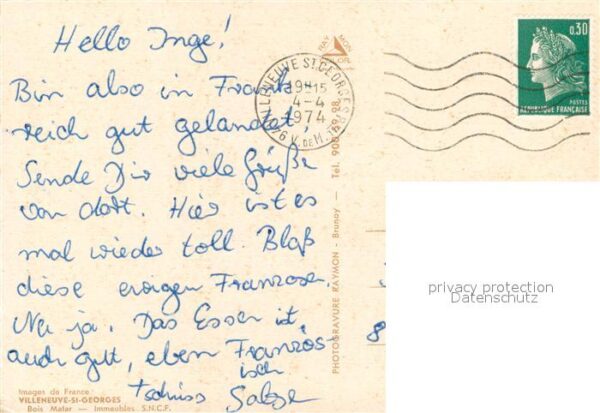 Hello Inge!
Bin also in Frank-
reich gut gelandet,
Sende Dir viele Grüße
von dort. Hier ist es
mal wieder toll. Bloß
diese ewigen Franzosen.
Na ja. Das Essen ist
auch gut, eben Französ
isch
Tschüss
Images de France
VILLENEUVE-St-GEORGES
Bois Matar — Immeubles S.N.C.F.
PHOTOGRAVURE RAYMON - Brunoy — Tél.
RAY MON
VILLENEUVE ST GEORGES
19H15
4-4
1974
V. DE M.
0,30
POSTES
REPUBLIQUE FRANÇAISE
8
privacy protection
Datenschutz